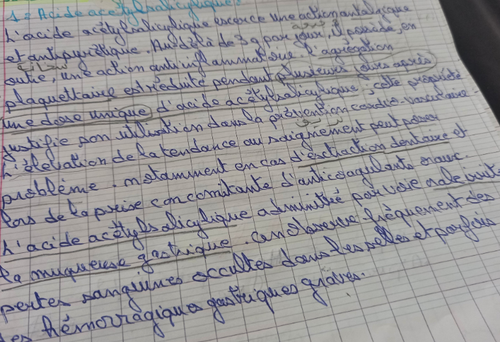 1 - Acide acétylsalicylique
L'acide acétylsalicylique exerce une action antalgique
et antipyrétique. Au delà de 3 g par jour, il possède, en
outre, une action anti inflammatoire. L'agrégation
plaquettaire est réduite pendant plusieurs jours après
une dose unique d'acide acétylsalicylique, cette propriété
justifie son utilisation dans la prévention cardio-vasculaire.
L'élévation de la tendance au saignement peut poser
problème. notamment en cas d'extraction dentaire et
lors de la prise concomitante d'anticoagulants oraux.
L'acide acétylsalicylique administré par voie orale irrite
la muqueuse gastrique. on observe fréquement des
pertes sanguines occultes dans les selles et parfois
des hémorragiques gastriques graves.